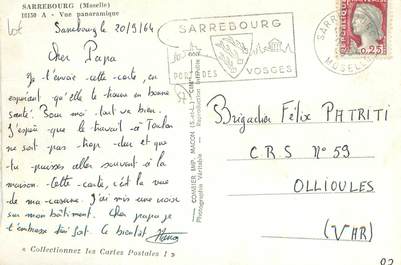 SARREBOURG (Moselle)
16150 A - Vue panoramique
lot
Sarrebourg le 20/9/64
Cher Papa
Je t'envoie cette carte, en
espérant qu'elle te trouve en bonne
santé. Pour moi tout va bien.
J'espère que le travail à Toulon
ne soit pas trop dur et que
tu puisses aller souvent à la
maison. Cette carte, c'est la vue
de ma caserne. J'ai mis une croix
sur mon bâtiment. Cher papa je
t'embrasse très fort. Le bientôt
« Collectionnez les Cartes Postales ! »
COMBIER IMP. MACON (S.-et-L.) "CIM"
Photographie Véritable - Reproduction Interdite
SARREBOURG
PORTE DES
VOSGES
SARREBOURG
MOSELLE
0,25
Brigadier Félix PATRITI
CRS N° 59
OLLIOULES
(VAR)